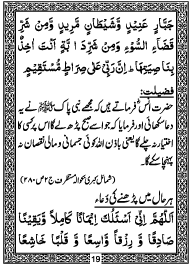 جَبَّارٍ عَنِيْدٍ وَّشَيْطَانٍ مَّرِيْدٍ وَّمِنْ شَرِّ
قَضَاءِ السُّوْءِ وَمِنْ شَرِّ دَآبَّةٍ اَنْتَ اٰخِذٌۢ
بِنَاصِيَتِهَا اِنَّ رَبِّيْ عَلٰى صِرَاطٍ مُّسْتَقِيْمٍ
فضیلت:
حضرت انسؓ فرماتے ہیں کہ مجھے نبی پاک ﷺ نے یہ
دعا سکھائی اور فرمایا کہ جو اسے صبح پڑھ لے گا اس پر کسی کا
اختیار نہ چلے گا یعنی باذن اللہ کوئی جسمانی ومالی نقصان نہ
پہنچا سکے گا۔
ہر حال میں پڑھنے کی دعاء
اَللّٰهُمَّ اِنِّيْ اَسْئَلُكَ اِيْمَانًا كَامِلًا وَّيَقِيْنًا
صَادِقًا وَّ رِزْقًا وَّاسِعًا وَّ قَلْبًا خَاشِعًا
19